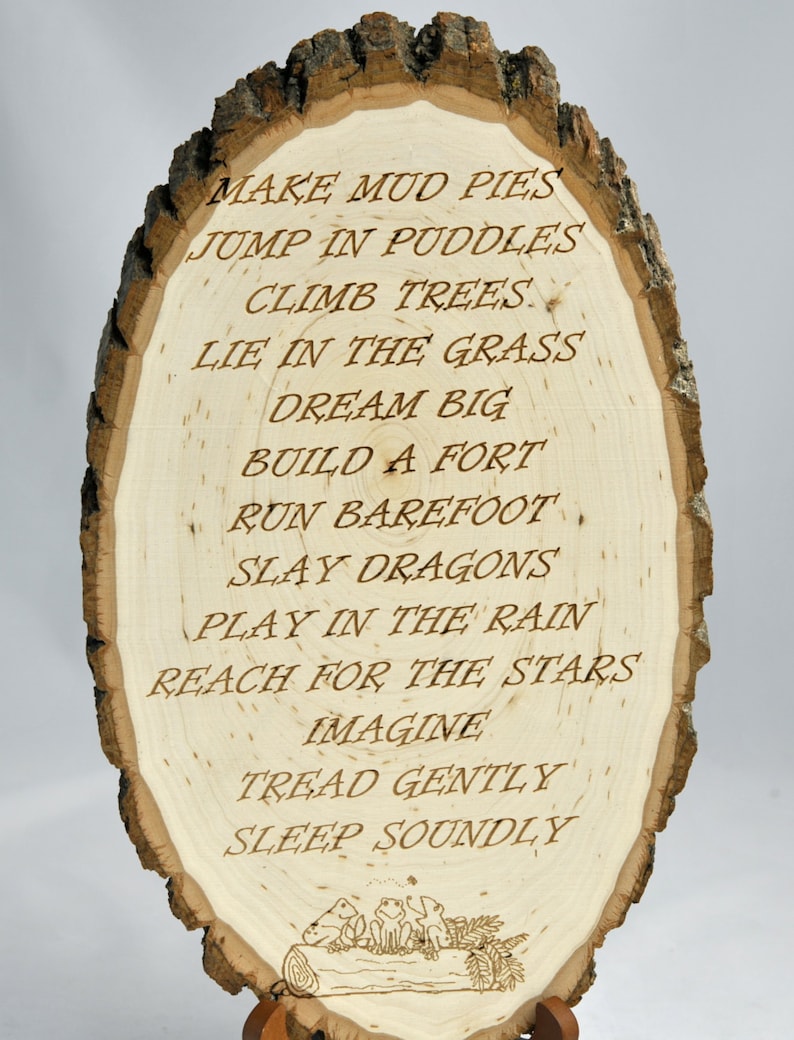 MAKE MUD PIES
JUMP IN PUDDLES
CLIMB TREES
LIE IN THE GRASS
DREAM BIG
BUILD A FORT
RUN BAREFOOT
SLAY DRAGONS
PLAY IN THE RAIN
REACH FOR THE STARS
IMAGINE
TREAD GENTLY
SLEEP SOUNDLY